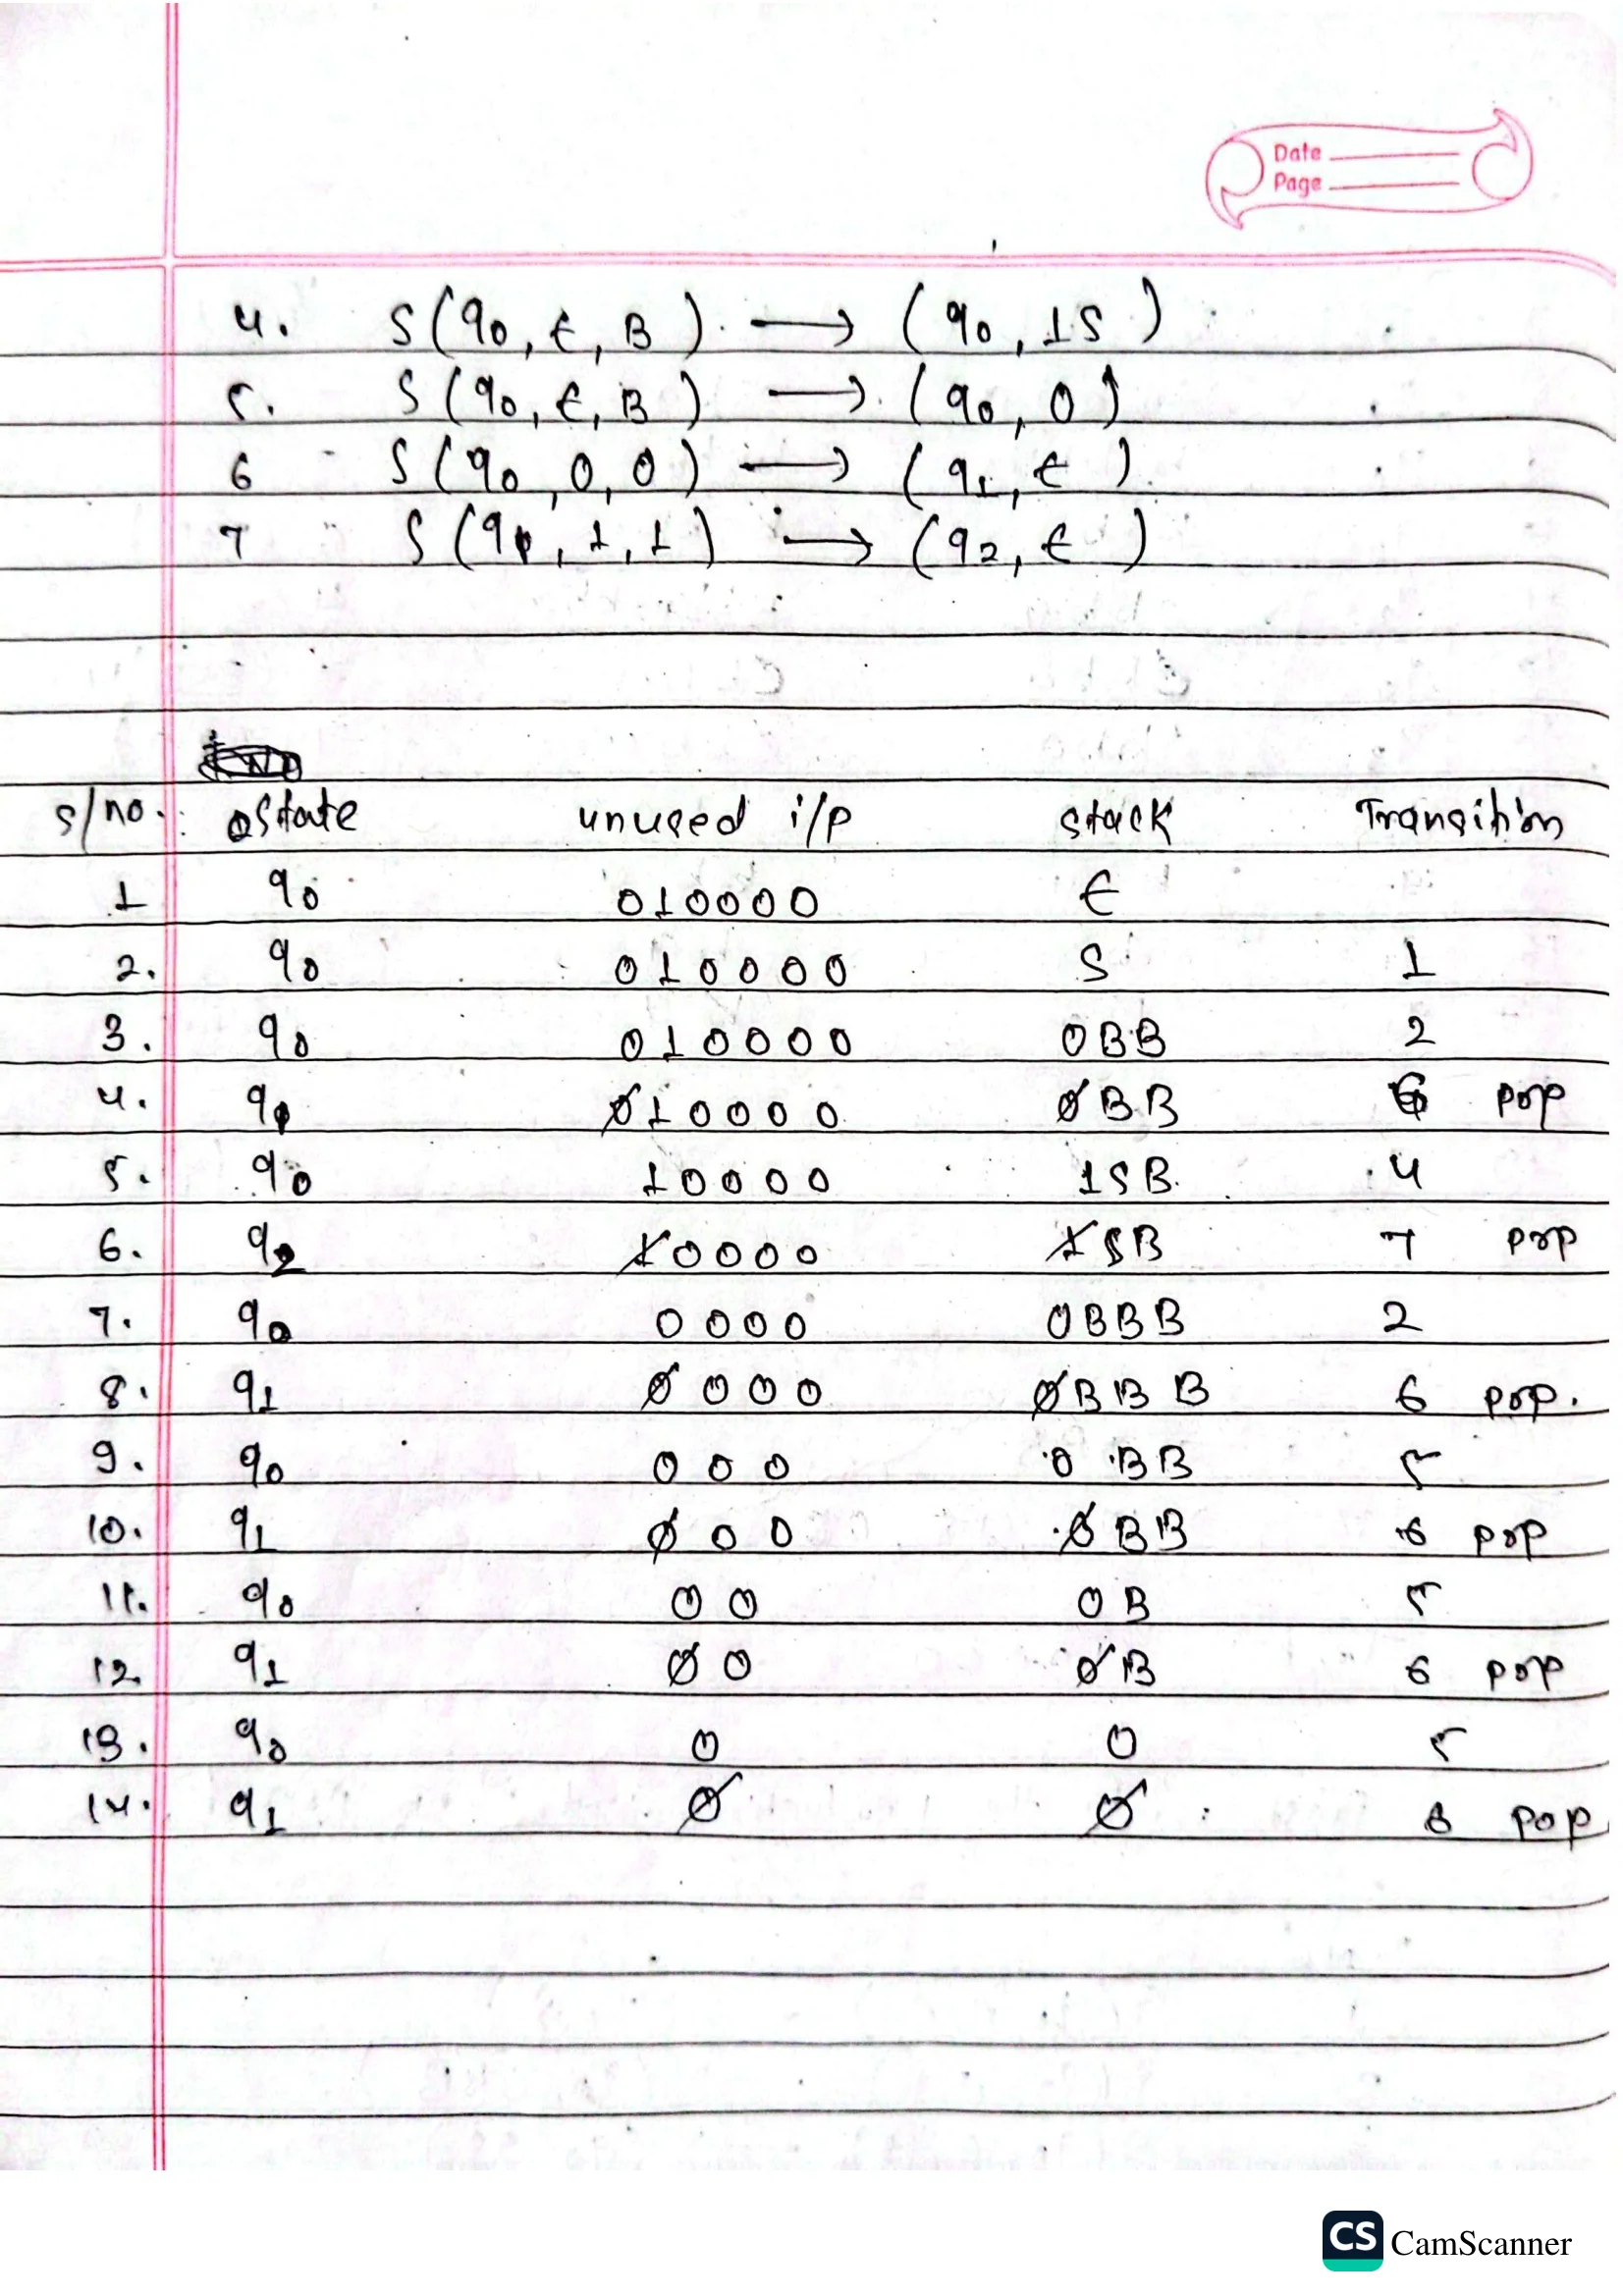 Date
Page
4. δ(q0, ε, B) → (q0, 1S)
5. δ(q0, ε, B) → (q0, 0)
6 δ(q0, 0, 0) → (q1, ε)
7 δ(q1, 1, 1) → (q2, ε)
s/no. State unused i/p stack Transition
1 q0 010000 ε
2. q0 010000 S 1
3. q0 010000 0BB 2
4. q1 010000 0BB 6 pop
5. q0 10000 1SB 4
6. q2 10000 1SB 7 pop
7. q0 0000 0BBB 2
8. q1 0000 0BBB 6 pop.
9. q0 000 0BB 5
10. q1 000 0BB 6 pop
11. q0 00 0B 5
12. q1 00 0B 6 pop
13. q0 0 0 5
14. q1 0 0 6 pop
CS CamScanner